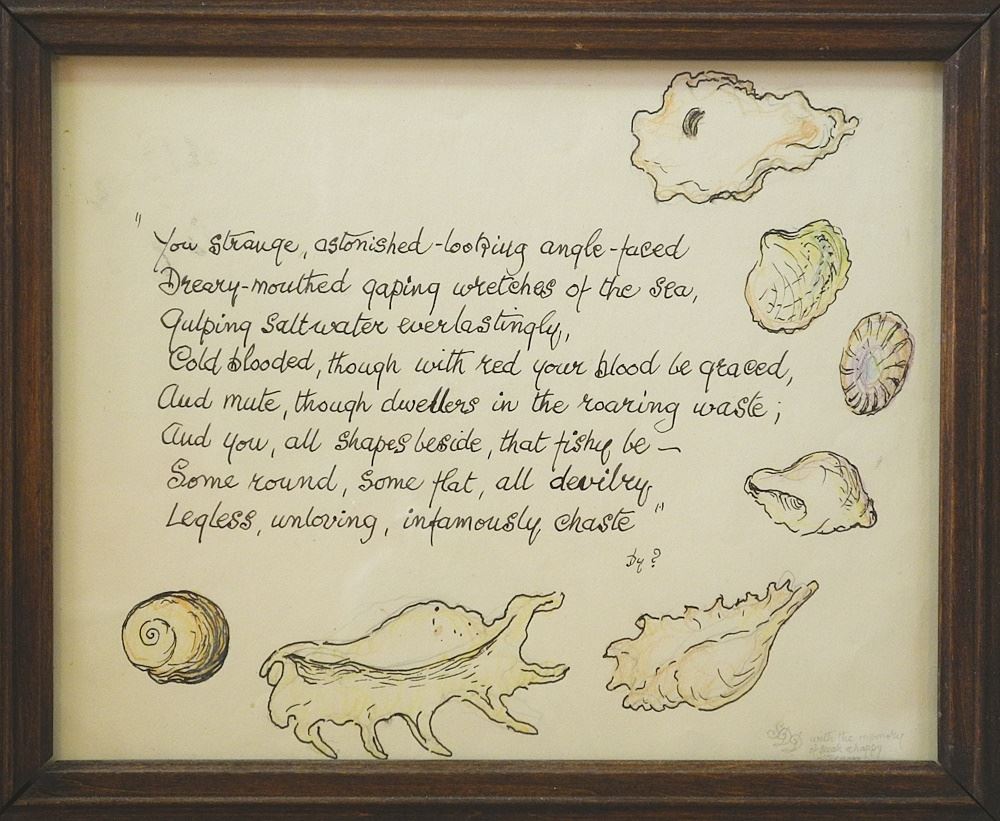 "You strange, astonished-looking angle-faced
Dreary-mouthed gaping wretches of the sea,
Gulping Saltwater everlastingly,
Cold blooded, though with red your blood be graced,
And mute, though dwellers in the roaring waste;
And you, all shapes beside, that fishy be —
Some round, Some flat, all devilry,
Legless, unloving, infamously chaste"
By ?
with the memory
of such a happy